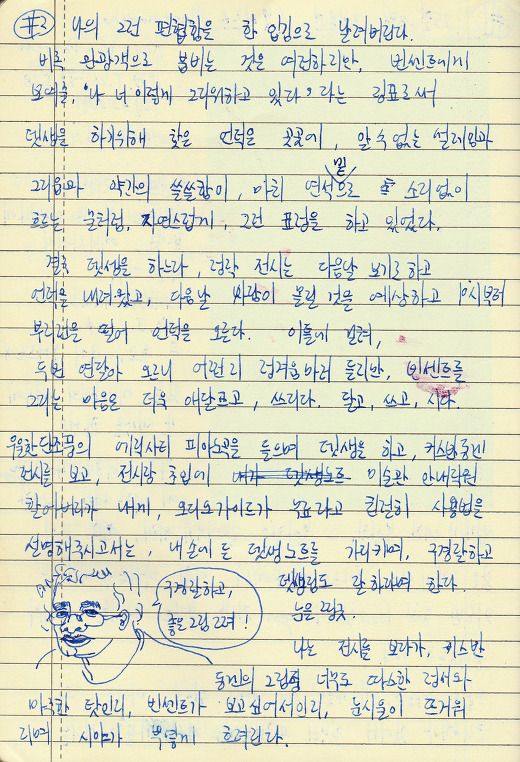 #3 나의 그런 편협함을 한 입김으로 날려버린다.
비록 관광객으로 붐비는 것은 여전하지만, 빈센트에게
보여줄, '나 너 이렇게 그리워하고 있다'라는 징표로써
뎃생을 하기위해 찾은 언덕은 곳곳에, 알 수 없는 설레임과
그리움과 약간의 쓸쓸함이, 마치 연석 밑으로 소리없이
흐르는 물처럼, 자연스럽게, 그런 표정을 하고 있었다.
결국 뎃생을 하느라, 정작 전시는 다음날 보기로 하고
언덕을 내려왔고, 다음날 사람이 몰릴 것을 예상하고 10시부터
부리런을 떨어 언덕을 오른다. 이틀에 걸쳐,
두번 연달아 오르니 어쩐지 정겨움마저 들지만, 빈센트를
그리는 마음은 더욱 애달프고, 쓰리다. 달고, 쓰고, 시다.
우울한 단조풍의 에릭사티 피아노곡을 들으며 뎃생을 하고, 키스반동겐
전시를 보고, 전시장 초입에 미술관 안내직원
할아버지가 내게, 오디오가이드가 무료라고 친절히 사용법을
설명해주시고서는, 내 손에 든 뎃생노트를 가리키며, 구경 잘하고
뎃생림도 잘 하라며 한다.
구경잘하고,
좋은 그림 그려!
눈을 찡긋.
나는 전시를 보다가, 키스반
동겐의 그림의 너무도 따스한 정서와
마주한 탓인지, 빈센트가 보고싶어서인지, 눈시울이 뜨거워
지며 시야가 뿌옇게 흐려진다.